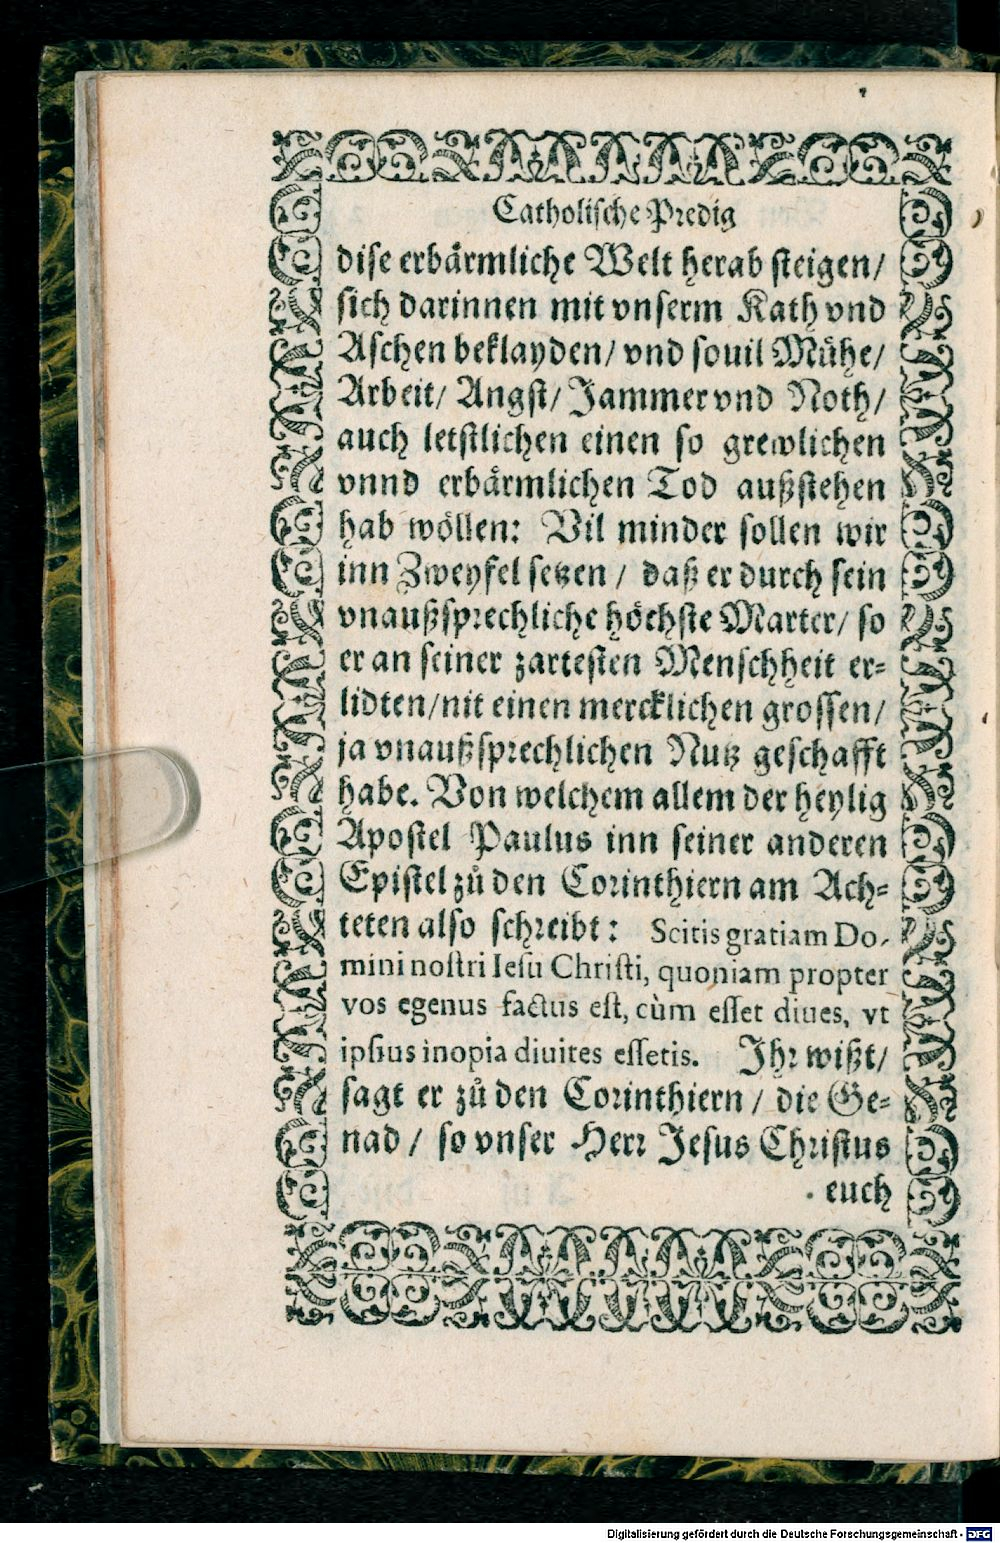 Catholische Predig
dise erbärmliche Welt herab steigen/
sich darinnen mit vnserm Kath vnd
Aschen beklayden/ vnd souil Mühe/
Arbeit/ Angst/ Jammer vnd Noth/
auch letstlichen einen so grewlichen
vnnd erbärmlichen Tod außstehen
hab wöllen: Vil minder sollen wir
inn Zweyfel setzen / daß er durch sein
vnaußsprechliche höchste Marter/ so
er an seiner zartesten Menschheit er-
lidten/nit einen mercklichen grossen/
ja vnaußsprechlichen Nutz geschafft
habe. Von welchem allem der heylig
Apostel Paulus inn seiner anderen
Epistel zů den Corinthiern am Ach-
teten also schreibt: Scitis gratiam Do-
mini nostri Iesu Christi, quoniam propter
vos egenus factus est, cùm esset diues, vt
ipsius inopia diuites essetis. Jhr wißt/
sagt er zů den Corinthiern / die Ge-
nad / so vnser Herr Jesus Christus
euch
Digitalisierung gefördert durch die Deutsche Forschungsgemeinschaft - DFG